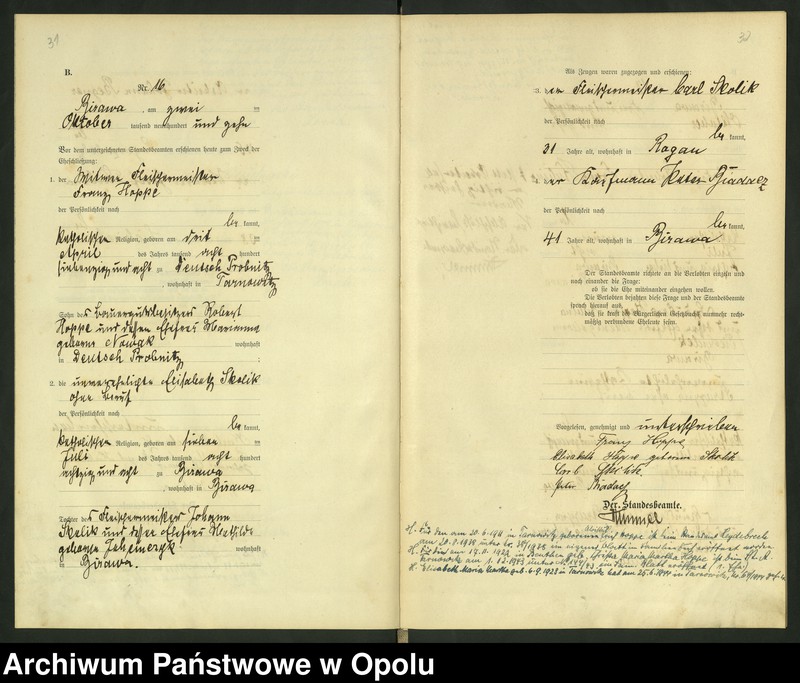 31
B.
Nr. 16
Birawa, am zwei
Oktober tausend neunhundert und zehn
Vor dem unterzeichneten Standesbeamten erschienen heute zum Zweck der
Eheschließung:
1. der Witwer Fleischermeister
Franz Hoppe
der Persönlichkeit nach
be kannt,
katholischer Religion, geboren am drit
April des Jahres tausend acht hundert
siebenzig und acht zu Deutsch Probnitz
, wohnhaft in Tarnowitz
Sohn des Bauergutsbesitzers Robert
Hoppe und dessen Ehefrau
geborene Nowak wohnhaft
in Deutsch Probnitz;
2. die unverehelichte Elisabeth Skolik
ohne Beruf
der Persönlichkeit nach
be kannt,
katholischer Religion, geboren am sieben
Juli des Jahres tausend acht hundert
achtzig und acht zu Birawa
, wohnhaft in Birawa
Tochter des Fleischermeisters Johann
Skolik und dessen Ehefrau Mathilde
geborene wohnhaft
in Birawa.
32
Als Zeugen waren zugezogen und erschienen:
3. der Fleischermeister Carl Skolik
der Persönlichkeit nach
be kannt,
31 Jahre alt, wohnhaft in Rogau
4. der Kaufmann Peter Biadacz
der Persönlichkeit nach
be kannt,
41 Jahre alt, wohnhaft in Birawa
Der Standesbeamte richtete an die Verlobten einzeln und
nach einander die Frage:
ob sie die Ehe miteinander eingehen wollen.
Die Verlobten bejahten diese Frage und der Standesbeamte
sprach hierauf aus,
daß sie kraft des Bürgerlichen Gesetzbuchs nunmehr recht-
mäßig verbundene Eheleute seien.
Vorgelesen, genehmigt und unterschrieben
Franz Hoppe
Elisabeth Hoppe geborene Skolik
Carl Skolik
Peter Biadacz
Der Standesbeamte.
Himmel
in Tarnowitz geborenen Hoppe ist beim Standesamt Heydebreck
am unter Nr. in eigenem Blatt im Familienbuch eröffnet worden
Maria Martha Hoppe ist beim
am 1.12.1943 unter 144/43 ein Fam. Blatt eröffnet (1. Ehe)
H. Elisabeth Maria Martha geb. 6.9.1923 in Tarnowitz hat am in Tarnowitz,
Archiwum Państwowe w Opolu